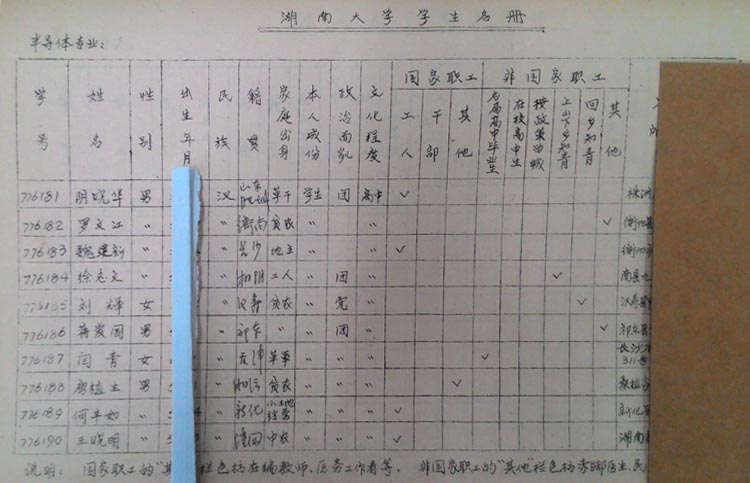 湖南大学学生名册
半导体专业:
学号 姓名 性别 出生年月 民族 籍贯 家庭出身 本人成份 政治面貌 文化程度 国家职工 非国家职工
工人 干部 其他 应届高中毕业生 在校高中生 按政策留城 上山下乡知青 回乡知青 其他
776181 阴晓华 男 汉 山东 革干 学生 团 高中 ✓ 株洲
776182 罗文江 〃 〃 衡南 贫农 〃 〃 ✓
776183 魏建新 〃 〃 长沙 地主 〃 〃 ✓
776184 徐志文 〃 〃 湘阴 工人 〃 团 〃 ✓ 南县
776185 刘烨 女 〃 汉寿 贫农 〃 党 〃 ✓ 汉寿
776186 蒋发国 男 〃 祁东 〃 〃 团 〃 ✓ 祁东县
776187 闫青 女 〃 天津 革军 〃 〃 〃 ✓ 长沙 311
776188 男 〃 贫农 〃 〃 〃 ✓ 桑植
776189 何丰如 〃 〃 新化 〃 〃 〃 ✓ 新化
776190 王晓明 〃 〃 潼关 中农 〃 〃 〃 ✓ 湖南
说明: 国家职工的"其 栏包括在编教师、医务工作者等. 非国家职工的"其他"栏包括赤脚医生、民